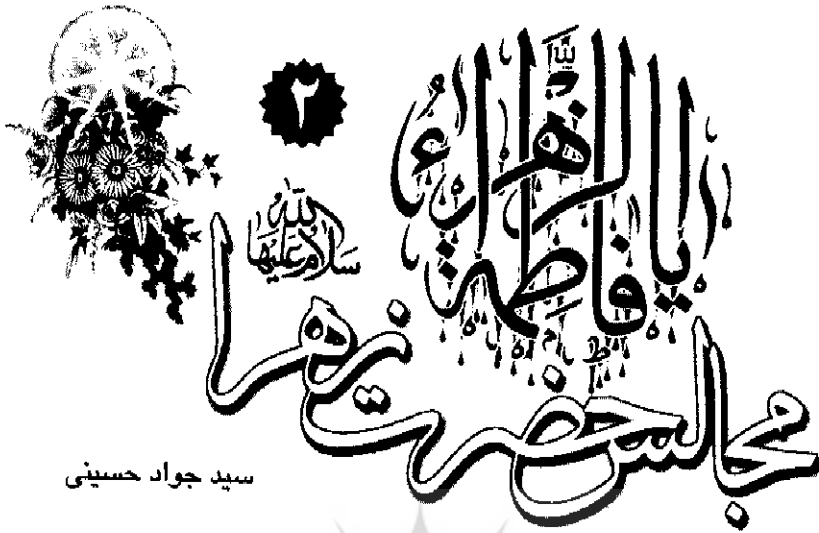 ۲
یا فاطمة الزهراء
سلام الله علیها
مجالس حضرت زهرا
سید جواد حسینی